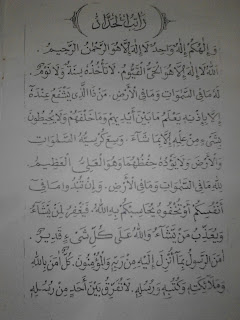 راتب الحداد
وَإِلٰهُكُمْ إِلٰهٌ وَاحِدٌ لَا إِلٰهَ إِلَّا هُوَ الرَّحْمٰنُ الرَّحِيْمُ
اَللهُ لَا إِلٰهَ إِلَّا هُوَ الْحَيُّ الْقَيُّوْمُ. لَا تَأْخُذُهُ سِنَةٌ وَلَا نَوْمٌ.
لَهُ مَا فِي السَّمٰوَاتِ وَمَا فِي الْأَرْضِ. مَنْ ذَا الَّذِيْ يَشْفَعُ عِنْدَهُ
إِلَّا بِإِذْنِهِ يَعْلَمُ مَا بَيْنَ أَيْدِيْهِمْ وَمَا خَلْفَهُمْ وَلَا يُحِيْطُوْنَ
بِشَيْءٍ مِنْ عِلْمِهِ إِلَّا بِمَا شَاءَ. وَسِعَ كُرْسِيُّهُ السَّمٰوَاتِ
وَالْأَرْضَ وَلَا يَؤُدُهُ حِفْظُهُمَا وَهُوَ الْعَلِيُّ الْعَظِيْمُ
لِلّٰهِ مَا فِي السَّمٰوَاتِ وَمَا فِي الْأَرْضِ. وَإِنْ تُبْدُوْا مَا فِيْ
أَنْفُسِكُمْ أَوْ تُخْفُوْهُ يُحَاسِبْكُمْ بِهِ اللهُ. فَيَغْفِرُ لِمَنْ يَشَاءُ
وَيُعَذِّبُ مَنْ يَشَاءُ وَاللهُ عَلَى كُلِّ شَيْءٍ قَدِيْرٌ.
اٰمَنَ الرَّسُوْلُ بِمَا أُنْزِلَ إِلَيْهِ مِنْ رَبِّهِ وَالْمُؤْمِنُوْنَ. كُلٌّ اٰمَنَ بِاللهِ
وَمَلَائِكَتِهِ وَكُتُبِهِ وَرُسُلِهِ. لَا نُفَرِّقُ بَيْنَ أَحَدٍ مِنْ رُسُلِهِ